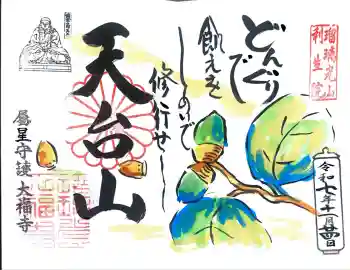 瑠璃光山
利生院
どんぐり
で
飢えを
しのいで
修行せし
天台山
属星守護 大福寺
令和七年十一月廿四日